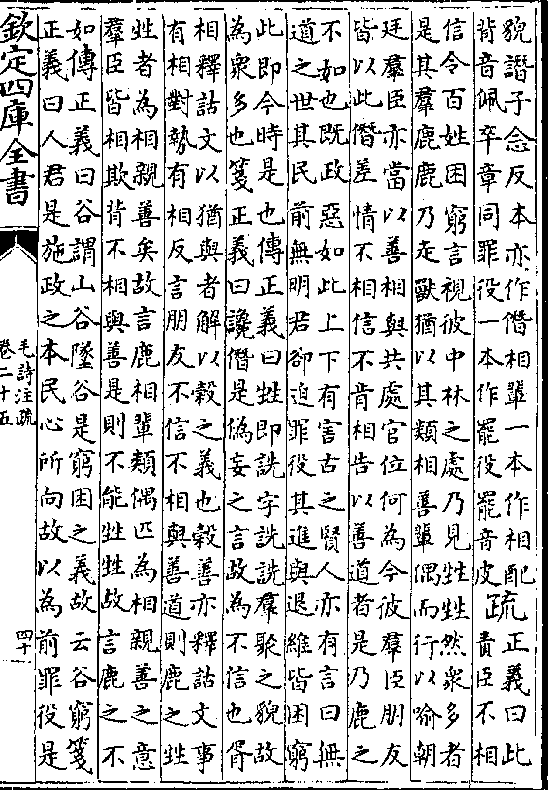 貌譖子念反本亦作僭相輩一本作相配
背音佩卒章同罪役一本作罷役罷音皮
疏
正義曰此
責臣不相
信令百姓困窮言視彼中林之處乃見甡甡然衆多者
是其羣鹿鹿乃走獸猶以其類相善輩偶而行以喻朝
廷羣臣亦當以善相與共處官位何為今彼羣臣朋友
皆以此僭差情不相信不肯相告以善道者是乃鹿之
不如也既政惡如此上下有害古之賢人亦有言曰無
道之世其民前無明君卻迫罪役其進與退維皆困窮
此即今時是也傳正義曰甡即詵字詵詵羣聚之貌故
為衆多也箋正義曰讒僭是偽妄之言故為不信也胥
相釋詁文以猶與者解以榖之義也榖善亦釋詁文事
有相對勢有相反言朋友不信不相與善道則鹿之甡
甡者為相親善矣故言鹿相輩類偶匹為相親善之意
羣臣皆相欺背不相與善是則不能甡甡故言鹿之不
如傳正義曰谷謂山谷墜谷是窮困之義故云谷窮箋
正義曰人君是施政之本民心所向故以為前罪役是
欽定四庫全書
毛詩注疏
卷二十五
四十